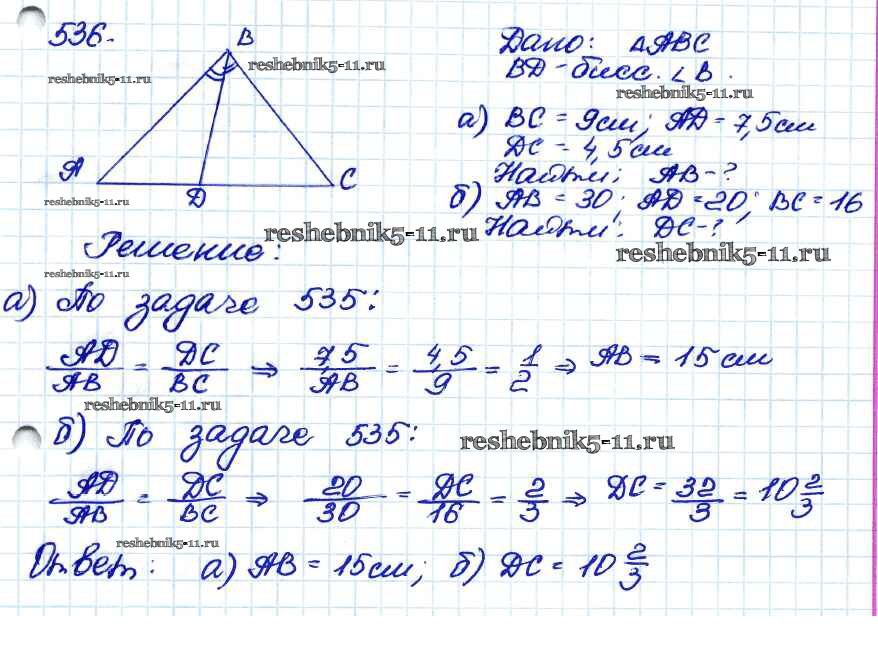 536.
B
Дано: △ABC
reshebnik5-11.ru
reshebnik5-11.ru
BD - бисс. ∠B.
reshebnik5-11.ru
а) BC = 9см; AD = 7,5см
DC = 4,5см
A
C
Найти: AB - ?
reshebnik5-11.ru
D
б) AB = 30; AD = 20; BC = 16
Найти: DC - ?
reshebnik5-11.ru
reshebnik5-11.ru
Решение:
reshebnik5-11.ru
а) По задаче 535:
AD/AB = DC/BC ⇒ 7,5/AB = 4,5/9 = 1/2 ⇒ AB = 15 см
reshebnik5-11.ru
б) По задаче 535:
reshebnik5-11.ru
AD/AB = DC/BC ⇒ 20/30 = DC/16 = 2/3 ⇒ DC = 32/3 = 10 2/3
reshebnik5-11.ru
Ответ: а) AB = 15см; б) DC = 10 2/3